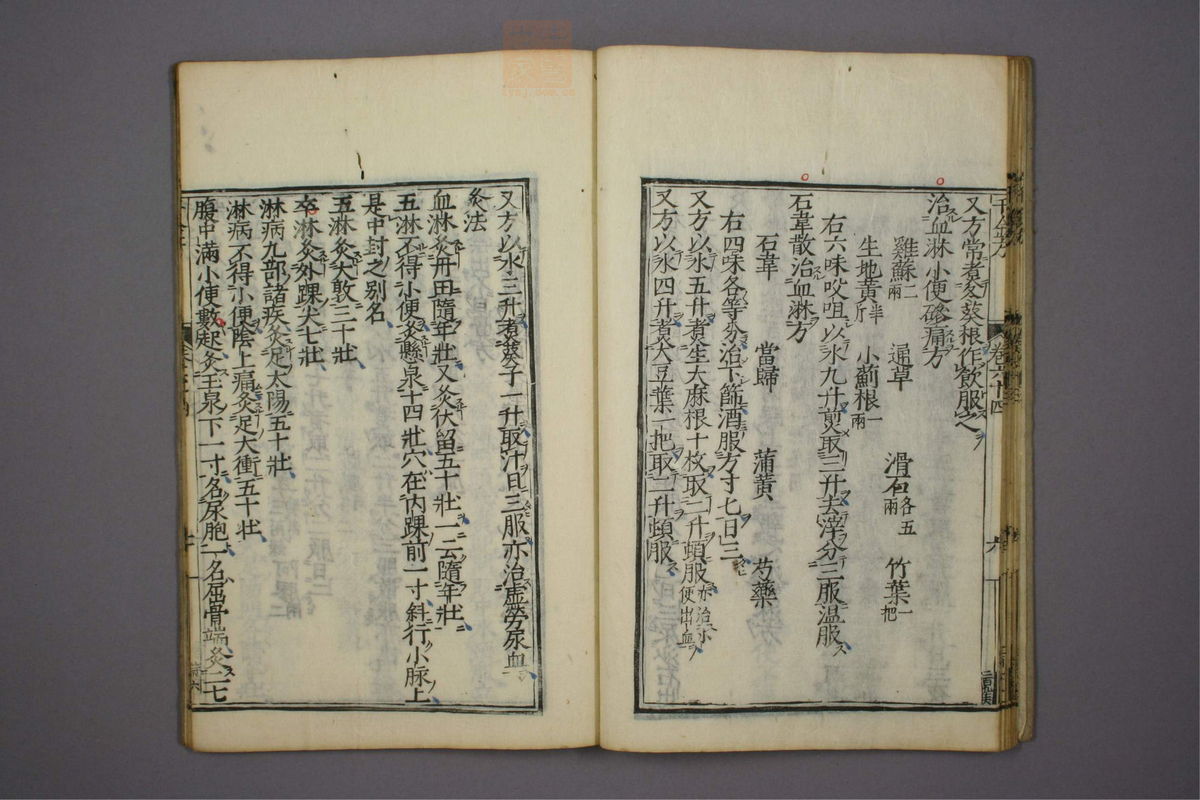 又方常煮冬葵根作飲服之
治血淋小便磣痛方
雞蘇二兩　通草　滑石各五兩　竹葉一把
生地黃半斤　小薊根一兩
右六味㕮咀以水九升煎取三升去滓分三服温服
石韋散治血淋方
石韋　當歸　蒲黃　芍藥
右四味各等分治下篩酒服方寸七日三
又方以水五升煮生大麻根十枚取二升頓服亦治小便出血
又方以水四升煮大豆葉一把取二升頓服
又方以水三升煮葵子一升取汁日三服亦治虛勞尿血
灸法
血淋灸丹田隨年壯又灸伏留五十壯一云隨年壯
五淋不得小便灸懸泉十四壯穴在內踝前一寸斜行小脉上
是中封之別名
五淋灸大敦三十壯
卒淋灸外踝尖七壯
淋病九部諸疾灸足太陽五十壯
淋病不得小便陰上痛灸足大衝五十壯
腹中滿小便數起灸玉泉下一寸名尿胞一名屈骨端灸二七